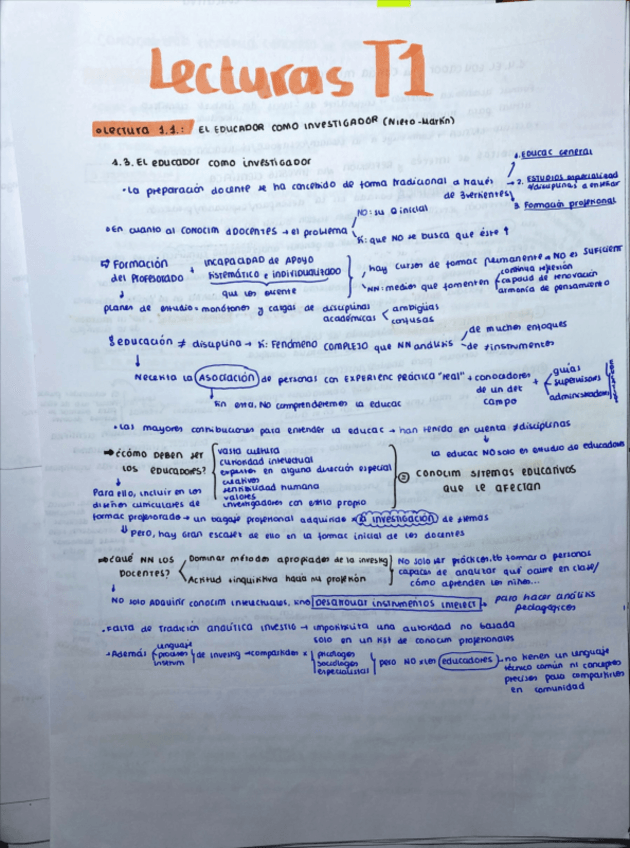 Lecturas T1
• Lectura 1.1.: EL EDUCADOR COMO INVESTIGADOR (Nieto-Martín)
4.3. EL EDUCADOR COMO INVESTIGADOR
• La preparación docente se ha concebido de forma tradicional a través de 3 vertientes
1. EDUCAC GENERAL
2. ESTUDIOS especialidad
≠disciplinas a enseñar
3. Formación profesional
• En cuanto al CONOCIM DOCENTES → el problema
NO: su Q inicial
Sí: que NO se busca que éste ↑
Formación del Profesorado + INCAPACIDAD DE APOYO sistemático e individualizado
que los oriente
, hay cursos de formac permanente → NO es suficiente
NN: medios que fomenten
continua reflexión
capacid de renovación
armonía de pensamiento
planes de estudio = monótonos y cargas de disciplinas académicas
ambigüas
confusas
educación ≠ disciplina → sí: Fenómeno COMPLEJO que NN análisis
de muchos enfoques
de ≠instrumentos
Necesita la ASOCIACIÓN de personas con EXPERIENC PRÁCTICA "real" + conocedores de un det campo +
guías
supervisores
administradores
Sin ésta, NO comprenderemos la educac
• Las mayores contribuciones para entender la educac → han tenido en cuenta ≠disciplinas
la educac NO solo es estudio de educadores
¿CÓMO DEBEN SER LOS EDUCADORES?
vasta cultura
curiosidad intelectual
expertos en alguna dirección especial
creativos
sensibilidad humana
valores
investigadores con estilo propio
CONOCIM SISTEMAS EDUCATIVOS QUE LE AFECTAN
Para ello, incluir en los diseños curriculares de formac profesorado → un bagaje profesional adquirido x la investigación de ≠temas
Pero, hay gran escasez de ello en la formac inicial de los docentes
¿QUÉ NN LOS DOCENTES?
Dominar métodos apropiados de la investig
Actitud +inquisitiva hacia su profesión
No solo ser prácticos, tb formar a personas
capaces de analizar qué ocurre en clase/
cómo aprenden los niños...
NO SOLO ADQUIRIR CONOCIM INTELECTUALES, sino DESARROLLAR INSTRUMENTOS INTELECT → para hacer análisis pedagógicos
• Falta de tradición analítica investig → imposibilita una autoridad no basada
solo en un list de conocim profesionales
• Además
lenguaje
procesos
instrum
de investig → compartidos x
psicólogos
sociólogos
especialistas
pero NO x los educadores → no tienen un lenguaje
técnico común ni conceptos
precisos para compartirlos
en comunidad